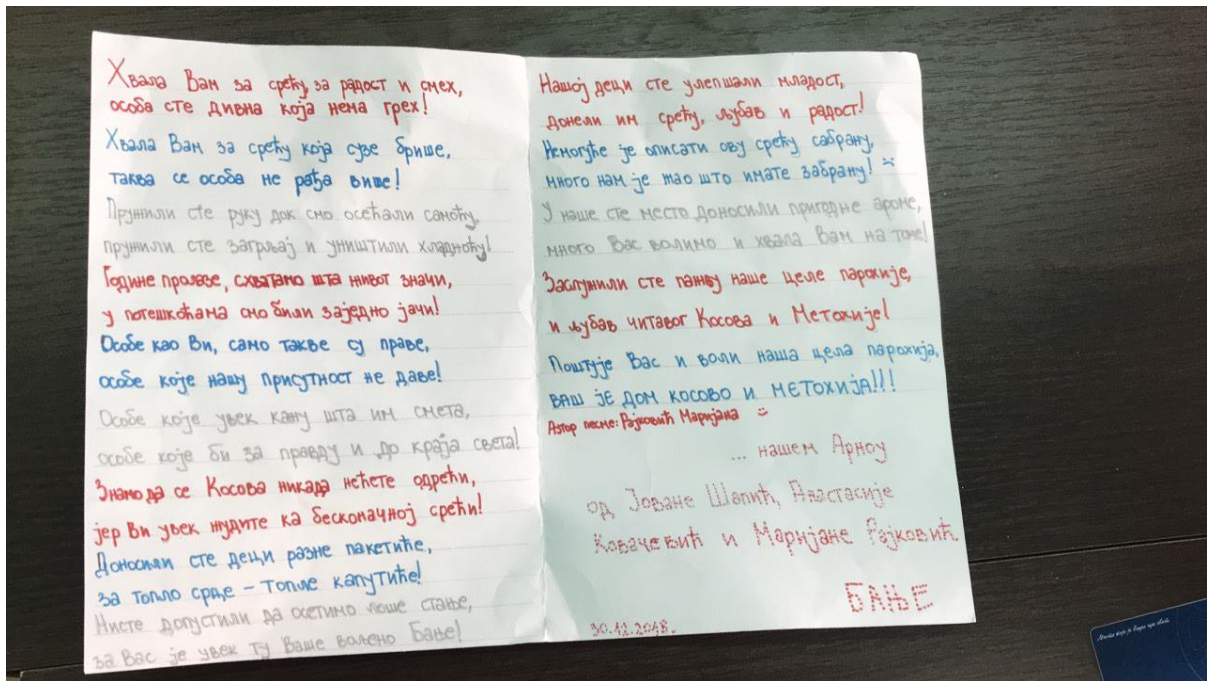 Хвала Вам за срећу, за радост и смех,
особа сте дивна која нема грех!
Хвала Вам за срећу која сузе брише,
таква се особа не рађа више!
Пружили сте руку док смо осећали самоћу,
пружили сте загрљај и уништили хладноћу!
Године пролазе, схватамо шта живот значи,
у потешкоћама смо били заједно јачи!
Особе као Ви, само такве су праве,
особе које нашу присутност не даве!
Особе које увек кажу шта им смета,
особе које би за правду и до краја света!
Знамо да се Косова никада нећете одрећи,
јер Ви увек жудите ка бесконачној срећи!
Доносили сте деци разне пакетиће,
за топло срце – топле капутиће!
Нисте допустили да осетимо лоше стање,
за Вас је увек ту Ваше вољено Бање!
Нашој деци сте улепшали младост,
донели им срећу, љубав и радост!
Немогуће је описати ову срећу сабрану,
много нам је жао што имате забрану!
У наше сте место доносили пригодне ароме,
много Вас волимо и хвала Вам на томе!
Заслужили сте пажњу наше целе парохије,
и љубав читавог Косова и Метохије!
Поштује Вас и воли наша цела парохија,
ВАШ ЈЕ ДОМ КОСОВО И МЕТОХИЈА!!!
Аутор песме: Рајковић Маријана
... нашем Арноу
од Јоване Шапић, Анастасије
Ковачевић и Маријане Рајковић.
БАЊЕ
30.12.2018.